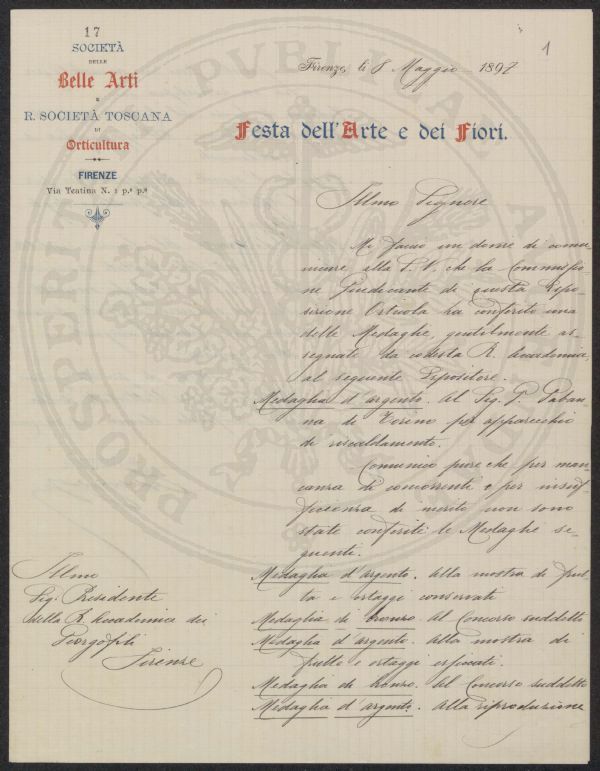 17
1
SOCIETÀ
DELLE
Belle Arti
E
R. SOCIETÀ TOSCANA
DI
Orticultura
FIRENZE
Via Teatina N. 1 p.º p.º
Firenze, li 8 Maggio 1897
Festa dell'Arte e dei Fiori.
Illmo Signore
Mi faccio un dovere di comu-
nicare alla S. V. che la Commissio-
ne Giudicante di questa Espo-
sizione Orticola ha conferito una
delle Medaglie, gentilmente as-
segnate da codesta R. Accademia
al seguente Espositore.
Medaglia d'argento. Al Sig. G.
na di Torino per apparecchio
di riscaldamento.
Comunico pure che per man-
canza di concorrente e per insuf-
ficienza di merito non sono
state conferite le Medaglie se-
guenti.
Medaglia d'argento. Alla mostra di frut-
ta e ortaggi conservati
Medaglia di bronzo. Al Concorso suddetto
Medaglia d'argento. Alla mostra di
frutte e ortaggi essiccati.
Medaglia di bronzo. Al Concorso suddetto
Medaglia d'argento. Alla riproduzione
Illmo
Sig. Presidente
della R. Accademia dei
Georgofili
Firenze
PROSPERITATI PUBLICAE